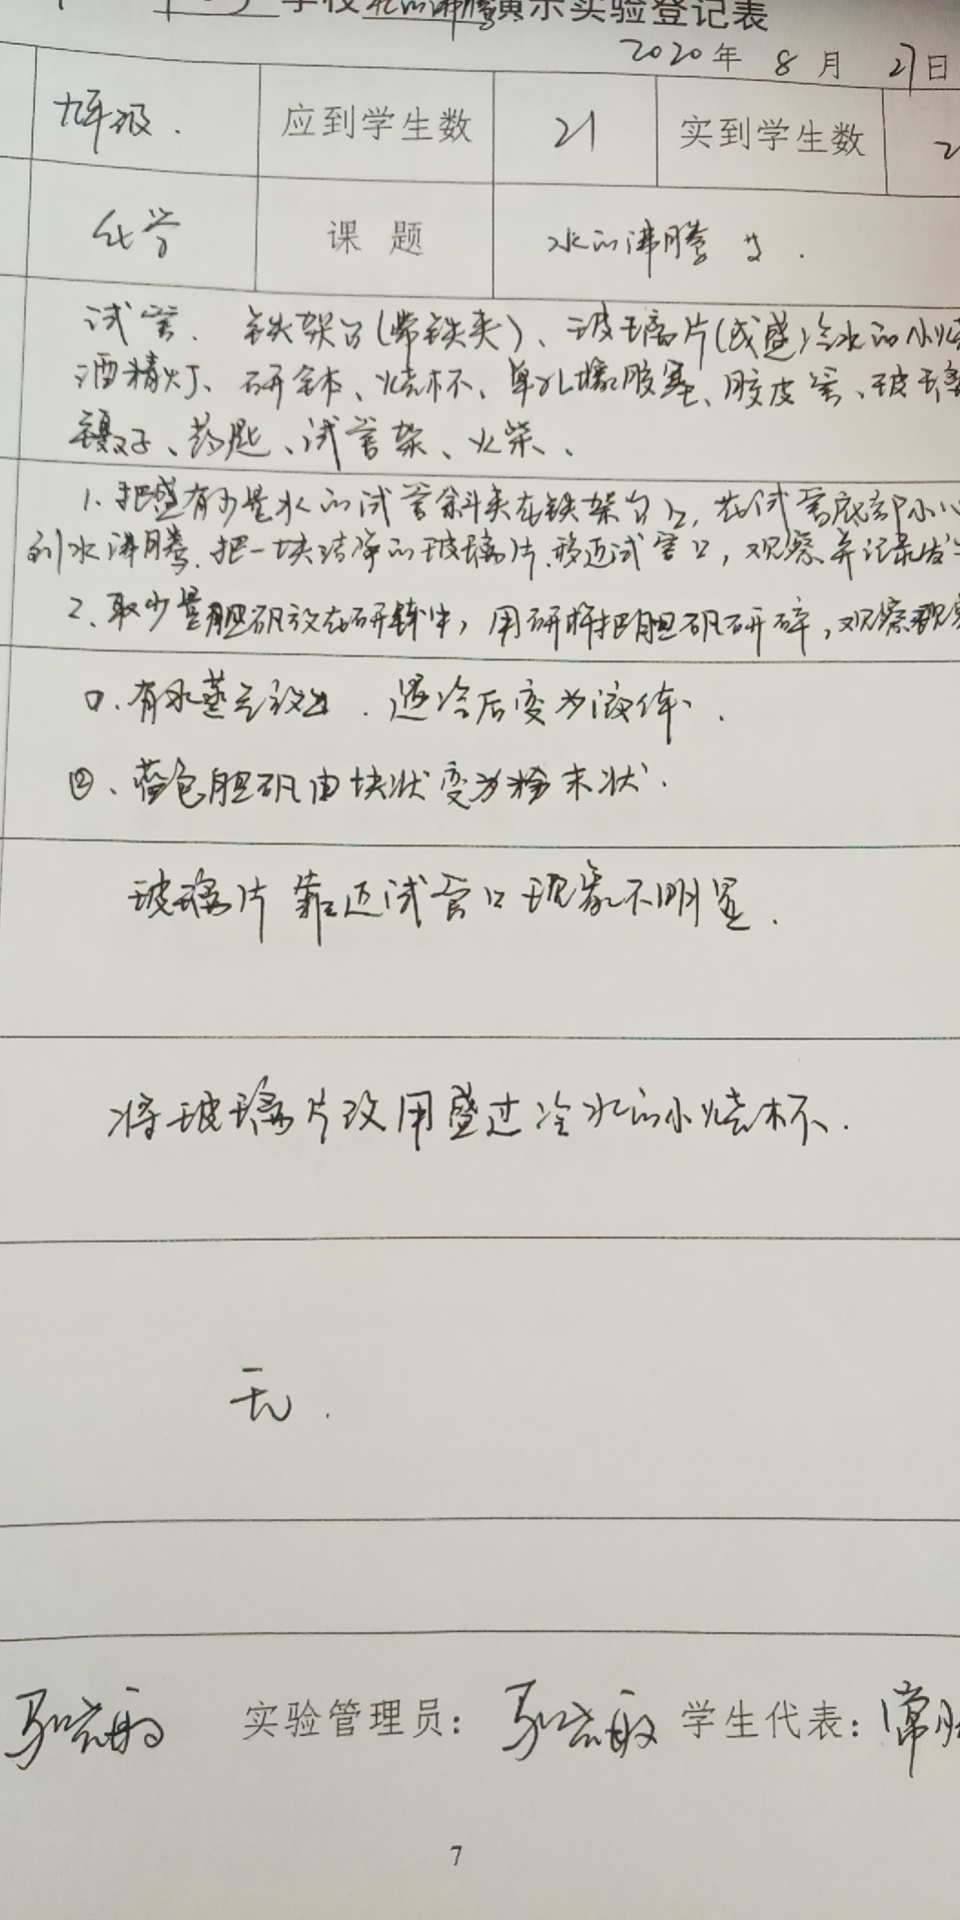 学校水的沸腾演示实验登记表
2020年 8月 27日
九年级. 应到学生数 21 实到学生数 2
化学 课 题 水的沸腾 等.
试管. 铁架台(带铁夹)、玻璃片(或盛冷水的小烧
酒精灯、研钵、烧杯、单孔橡胶塞、胶皮管、玻璃
镊子、药匙、试管架、火柴、
1、把盛有少量水的试管斜夹在铁架台上, 在试管底部小心
到水沸腾.把一块洁净的玻璃片.移近试管口, 观察并记录发生
2、取少量胆矾放在研钵中, 用研杵把胆矾研碎, 观察
①、有水蒸气放出. 遇冷后变为液体.
②、蓝色胆矾由块状变为粉末状.
玻璃片靠近试管口现象不明显.
将玻璃片改用盛过冷水的小烧杯.
无.
实验管理员: 学生代表: 常
7